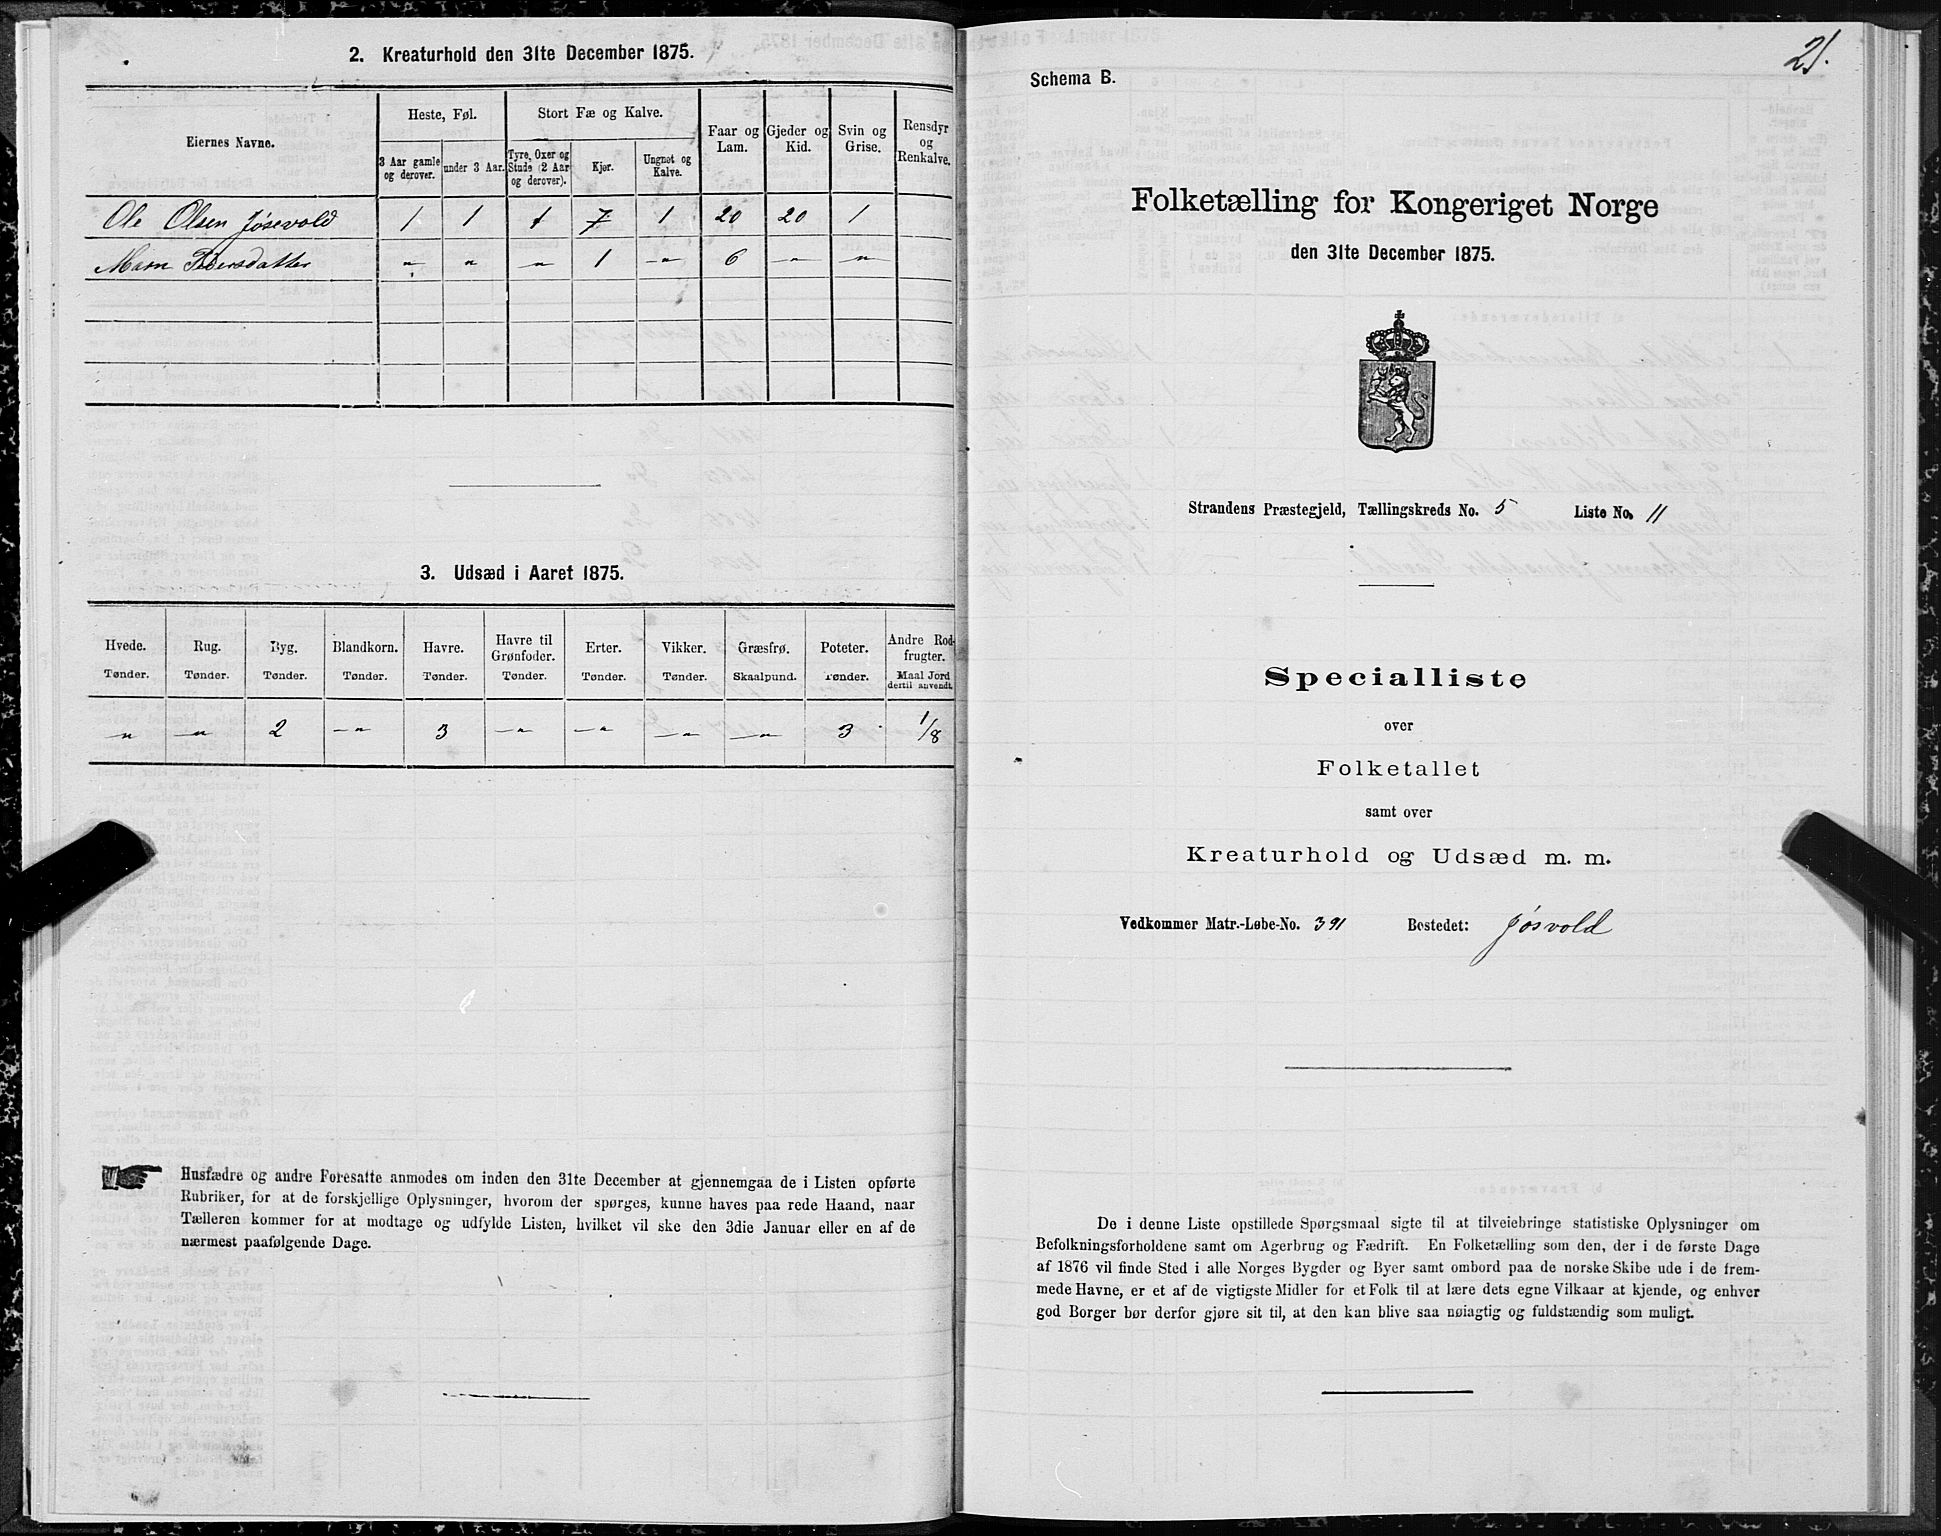 2. Kreaturhold den 31te December 1875.
Eiernes Navne.
Heste, Føl.
3 Aar gamle og derover.
under 3 Aar.
Stort Fæ og Kalve.
Tyre, Oxer og Stude (2 Aar og derover).
Kjør.
Ungnøt og Kalve.
Faar og Lam.
Gjeder og Kid.
Svin og Grise.
Rensdyr og Renkalve.
Ole Olsen Jøsevold 1 1 1 7 1 20 20 1
Marn Pedersdatter " " " 1 " 6 " "
3. Udsæd i Aaret 1875.
Hvede. Tønder.
Rug. Tønder.
Byg. Tønder.
Blandkorn. Tønder.
Havre. Tønder.
Havre til Grønfoder. Tønder.
Erter. Tønder.
Vikker. Tønder.
Græsfrø. Skaalpund.
Poteter. Tønder.
Andre Rodfrugter. Maal Jord dertil anvendt.
" " 2 " 3 " " " " 3 1/8
Husfædre og andre Foresatte anmodes om inden den 31te December at gjennemgaa de i Listen opførte
Rubriker, for at de forskjellige Oplysninger, hvorom der spørges, kunne haves paa rede Haand, naar
Tælleren kommer for at modtage og udfylde Listen, hvilket vil ske den 3die Januar eller en af de
nærmest paafølgende Dage.
21.
Schema B.
Folketælling for Kongeriget Norge
den 31te December 1875.
Strandens Præstegjeld, Tællingskreds No. 5 Liste No. 11
Specialliste
over
Folketallet
samt over
Kreaturhold og Udsæd m. m.
Vedkommer Matr.-Løbe-No. 391 Bostedet: Jøsvold
De i denne Liste opstillede Spørgsmaal sigte til at tilveiebringe statistiske Oplysninger om
Befolkningsforholdene samt om Agerbrug og Fædrift. En Folketælling som den, der i de første Dage
af 1876 vil finde Sted i alle Norges Bygder og Byer samt ombord paa de norske Skibe ude i de frem-
mede Havne, er et af de vigtigste Midler for et Folk til at lære dets egne Vilkaar at kjende, og enhver
god Borger bør derfor gjøre sit til, at den kan blive saa nøiagtig og fuldstændig som muligt.